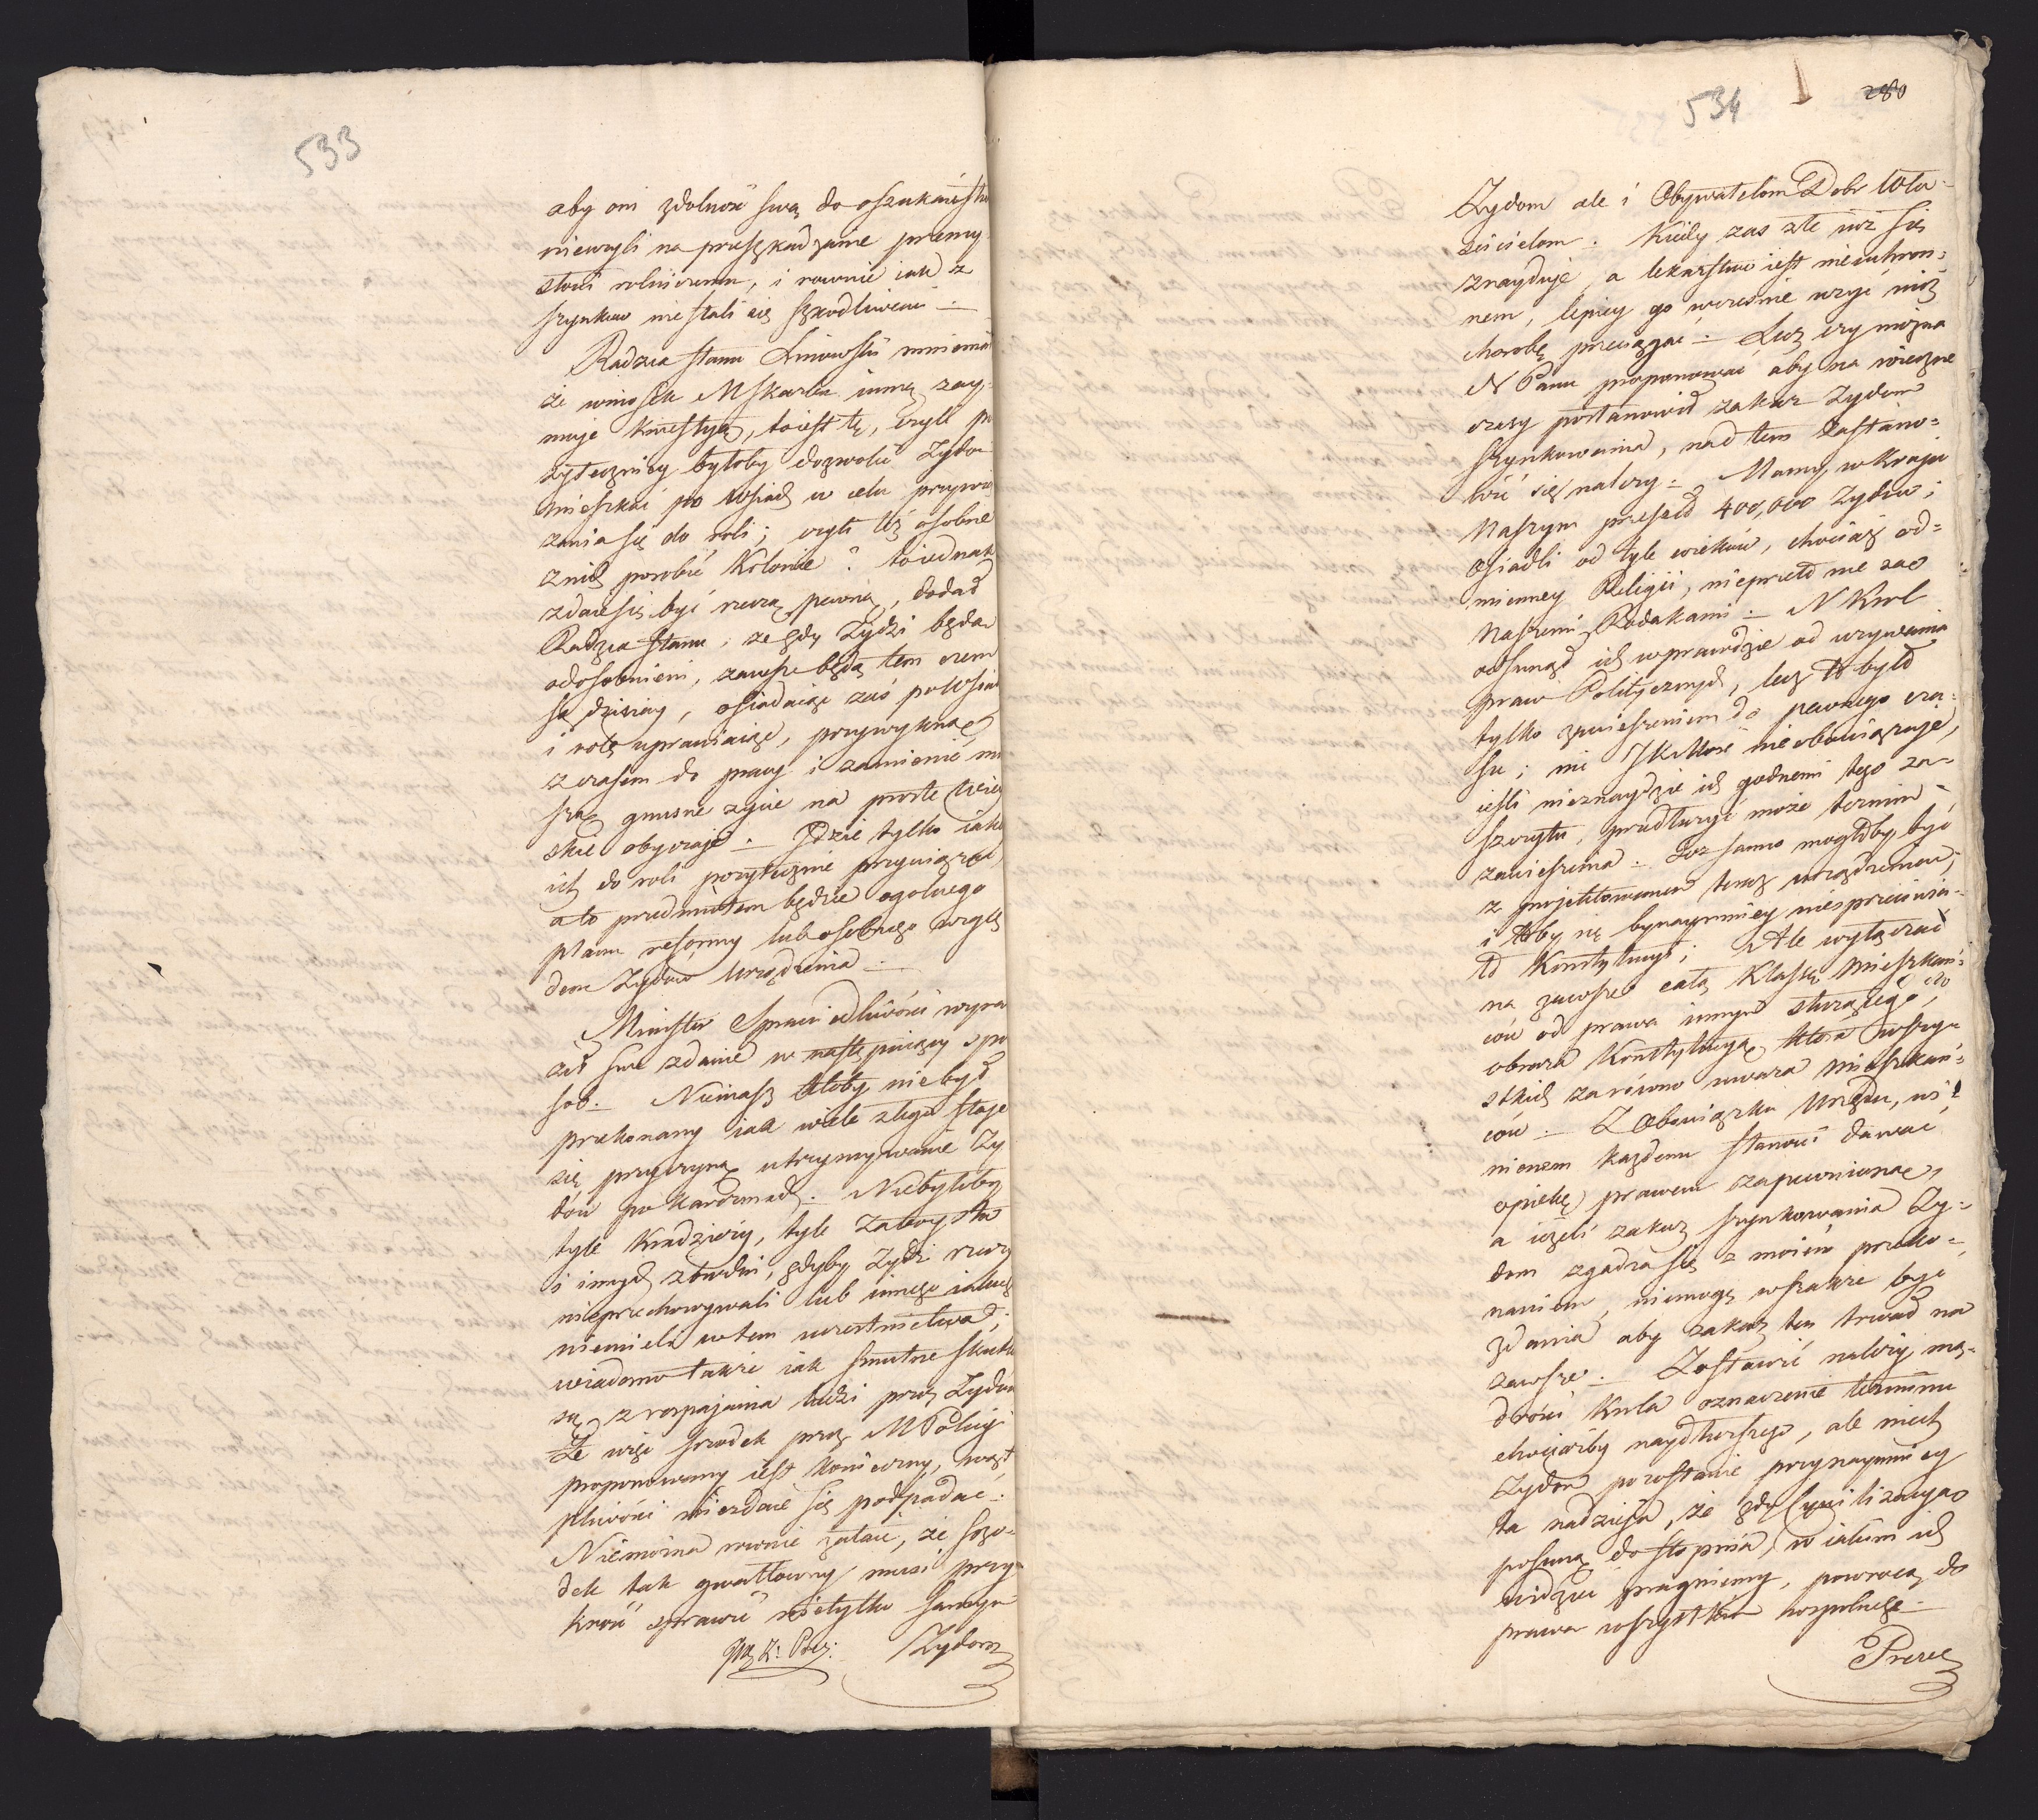 533
aby oni zdolność swą do oszukaństw
nieużyli na przeszkadzanie przemy-
słowi rolniczemu, i rownie iak z
szynków nie stali się szkodliwemi –
Radzca Stanu Linowski mniemał
że wniosek M Skarbu inną zay-
muje kwestyą, toiest tę, czyli po
żyteczniey byłoby dozwolić Żydom
mieszkać po Wsiach w celu przywią
zania się do roli; czyli też osobne
znich porobić Kolonie? to iednak
zdaiesię być rzeczą pewną, dodał
Radzca Stanu, że gdy Żydzi będą
odosobnieni, zawsze będą tem czem
są dzisiay, osiadaiąc zaś po Wsiach
i rolę uprawiaiąc, przywykną
z czasem do pracy i zamienić mu
szą gnusne życie na proste wiey
skie obyczaje. – Idzie tylko iak
ich do roli pożytecznie przywiązać
ato przedmiotem będzie ogolnego
planu reformy lub osobnego wzglę
dem Żydów Urządzenia –
Minister Sprawiedliwości wyra
ził swe zdanie w następuiący spo
sob. – Niemasz ktoby niebył
przekonany iak wiele złego staje
się przyczyną utrzymywanie Ży
dów po karczmach. Niebyłoby
tyle Kradzieży, tyle Zaboystw
i innych zbrodni, gdyby Żydzi rzeczy
nieprzechowywali lub innego iakieg
niemieli wtem uczestnictwa;
wiadomo także iak smutne skutki
są z rozpajania ludzi przez Żydów
Że więc srzodek przez M Policyi
proponowany iest konieczny, wąt
pliwości niezdaie się podpadać.
Niemożna rownie zataić, że srzo-
dek tak gwałtowny musi przy-
krość sprawić nietylko samym
Żydom
534
280
Żydom ale i Obywatelom Dobr Wła-
ścicielom. Kiedy zas złe już się
znayduje, a lekarstwo iest nieuchron-
nem, lepiey go wcześnie użyć niż
chorobę przeciągać. – Lecz czy można
N Panu proponować aby na wieczne
czasy postanowił zakaz Żydom
szynkowania, nad tem Zastano-
wić się należy. – Mamy w Kraju
Naszym przeszło 400,000 Żydów;
Osiadli od tyle wieków, chociaż od-
mienney Religii, nieprzeto nie są
Naszemi Rodakami. – N Krol
odsunął ich wprawdzie od używania
praw Politycznych, lecz to było
tylko zawieszeniem do pewnego cza-
su; nic JKMość nieobowiązuje,
iesli nieznaydzie ich godnemi tego za-
szczytu, przedłużyć może termin
zawieszenia. Toż samo mogłoby być
z projektowanem teraz urządzeniem,
i toby się bynaymniey niesprzeciwia-
ło Konstytucyi; Ale wyłączać
na zawsze całą Klassę Mieszkań-
ców od prawa innym służącego, ~~to~~
obraża Konstytucyą, która wszy-
stkich zarówno uważa Mieszkań-
ców. – Z obowiązku Urzędu, wi-
nienem każdemu stanowi dawać
opiekę prawem zapewnioną,
a ieżeli zakaz szynkowania Ży-
dom zgadza się z moiem przeko-
naniem, niemogę wszakże być
zdania aby zakaz ten trwał na
zawsze. – Zostawić należy mą-
drości Krola oznaczenie terminu
chociażby naydłuższego, ale niech
Żydom pozostanie przynaymniey
ta nadzieja, że gdy Cywilizacyą
posuną do stopnia, w iakim ich
widzieć pragniemy, powrócą do
prawa wszystkim wspolnego –
Prezes